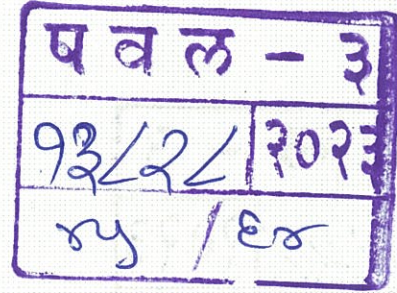 पवल - ३
१३८२८ २०२३
४५ / ६४